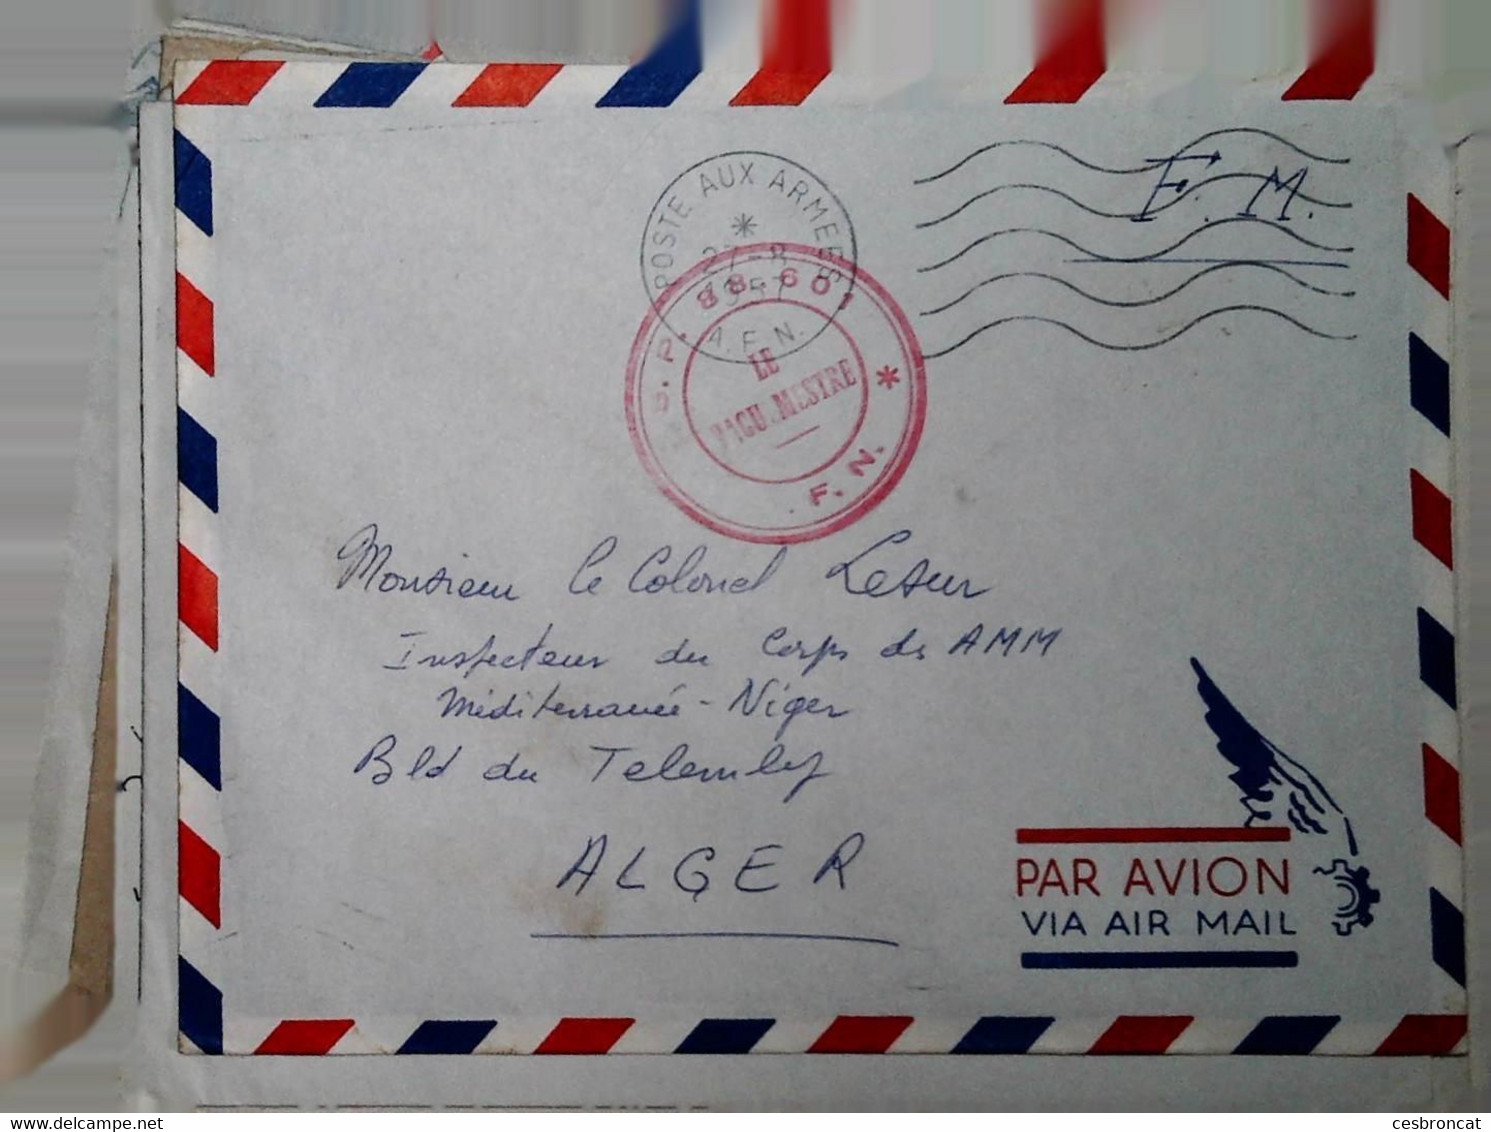 POSTE AUX ARMEES
*
27-8
1957
A.F.N.
F.M.
S.P. 88-601
LE
*
F.N.
Monsieur le Colonel Lesur
Inspecteur du Corps des AMM
Méditerranée-Niger
Bld du Telemly
ALGER
PAR AVION
VIA AIR MAIL
www.delcampe.net
cesbroncat